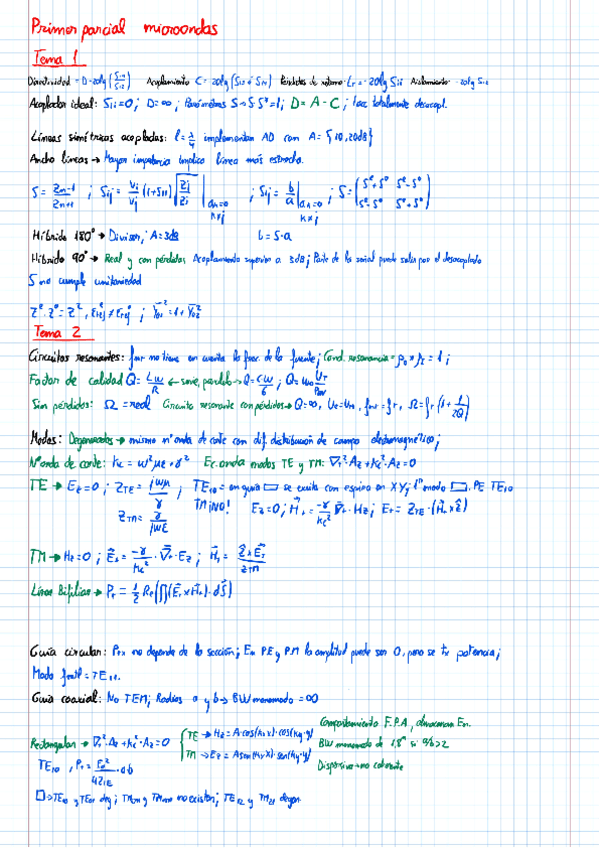 Primer parcial microondas
Tema 1
Directividad = D = 20lg (S13/S14) Acoplamiento C = 20lg Pérdidas de retorno: Lr = -20lg Sii Aislamiento: -20lg
Acoplador ideal: Sii=0; D=∞; Parámetros S→S S*=1; D = A - C; totalmente desacopl.
Líneas simétricas acopladas: l = λ/4 implementan AD con A = {10, 20dB}
Ancho líneas → Mayor impedancia implica línea más estrecha.
S = Zn-1/Zn+1 ; Sij = Vi/Vj (1+S11) √Zj/Zi | ak=0 k≠j ; Sij = b/a | ak=0 k≠j ; S =
Híbrido 180° → Divisor, A=3dB b=S·a
Híbrido 90° → Real y con pérdidas Acoplamiento superior a 3dB; Parte de la señal puede salir por el desacoplado
S no cumple unitariedad
Tema 2
Circuitos resonantes: no tiene en cuenta la frec. de la fuente; Cond. resonancia = ρ0 * ρL = 1;
Factor de calidad Q = LW/R ← serie, paralelo → Q = CW/G ; Q = W0
Sin pérdidas: Ω = real Circuito resonante con pérdidas → Q = ∞,
Modos: Degenerados → mismo nº onda de corte con dif. distribución de campo electromagnético;
Nº onda de corte: kc = w²με + γ² Ec. onda modos TE y TM: ∇t²·Az + kc²·Az = 0
TE → Ez = 0 ; ZTE = jwμ/γ ; TE10 = en guía ▭ se excita con espira en XY; 1er modo ▭. P.E TE10
ZTM = γ/jwε TM ¡NO! Ez = 0; Ht = -γ/kc² ∇t · Hz ; Et = ZTE · (Ht × ẑ)
TM → Hz = 0 ; Et = -γ/kc² · ∇t · Ez ; Ht = ẑ × Et/ZTM
Línea Bifilar → PT = 1/2 Re (∬(Et × Ht) · dS)
Guía circular: no depende de la sección; En P.E y P.M la amplitud puede ser 0, pero se tx potencia;
Modo fundl = TE11.
Guía coaxial: No TEM; Radios a y b → BW monomodo = ∞
Comportamiento F.P.A, almacenan Em.
Rectangular → ∇t²·Az + kc²·Az = 0 { TE → Hz = A·cos(kx x)·cos(ky·y)
TM → Ez = A sen(kx x)·sen(ky·y)
BW monomodo de 1,8ª si a/b > 2
Dispersiva → no coherente
TE10, PT = E0²/4ZTE · ab
□ → TE10 y TE01 deg; no existen; TE12 y TM21 degen.